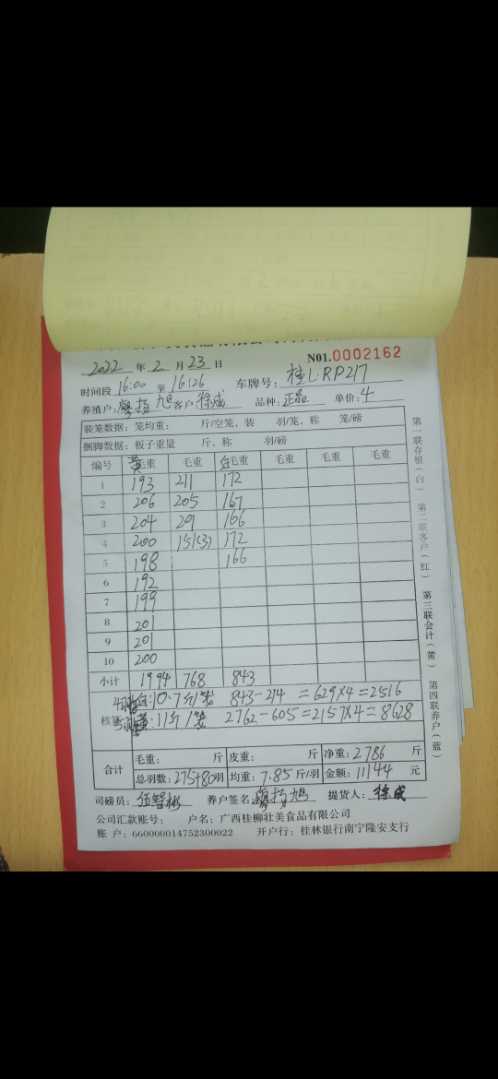 N01.0002162
2022 年 2 月 23 日
时间段 16:00 至 16:26 车牌号: 桂L·RP217
养殖户: 客户 品种: 正品 单价: 4
装笼数据: 笼均重: 斤/空笼、装 羽/笼、称 笼/磅
捆脚数据: 板子重量 斤、称 羽/磅
编号 黄毛重 毛重 白毛重 毛重 毛重 毛重
1 193 211 172
2 206 205 167
3 204 201 166
4 200 151(3) 172
5 198 166
6 192
7 199
8 201
9 201
10 200
小计 1994 768 843
白:10.7斤/笼 843-214=629×4=2516
核算 黄:11斤/笼 2762-605=2157×4=8628
合计 毛重: 斤 皮重: 斤 净重: 2786 斤
总羽数: 275+80羽 均重: 7.85 斤/羽 金额: 11144 元
司磅员: 养户签名: 提货人:
公司汇款账号: 户名: 广西桂柳壮美食品有限公司
账 户: 660000014752300022 开户行: 桂林银行南宁隆安支行
第一联存根(白) 第二联客户(红) 第三联会计(黄) 第四联养户(蓝)